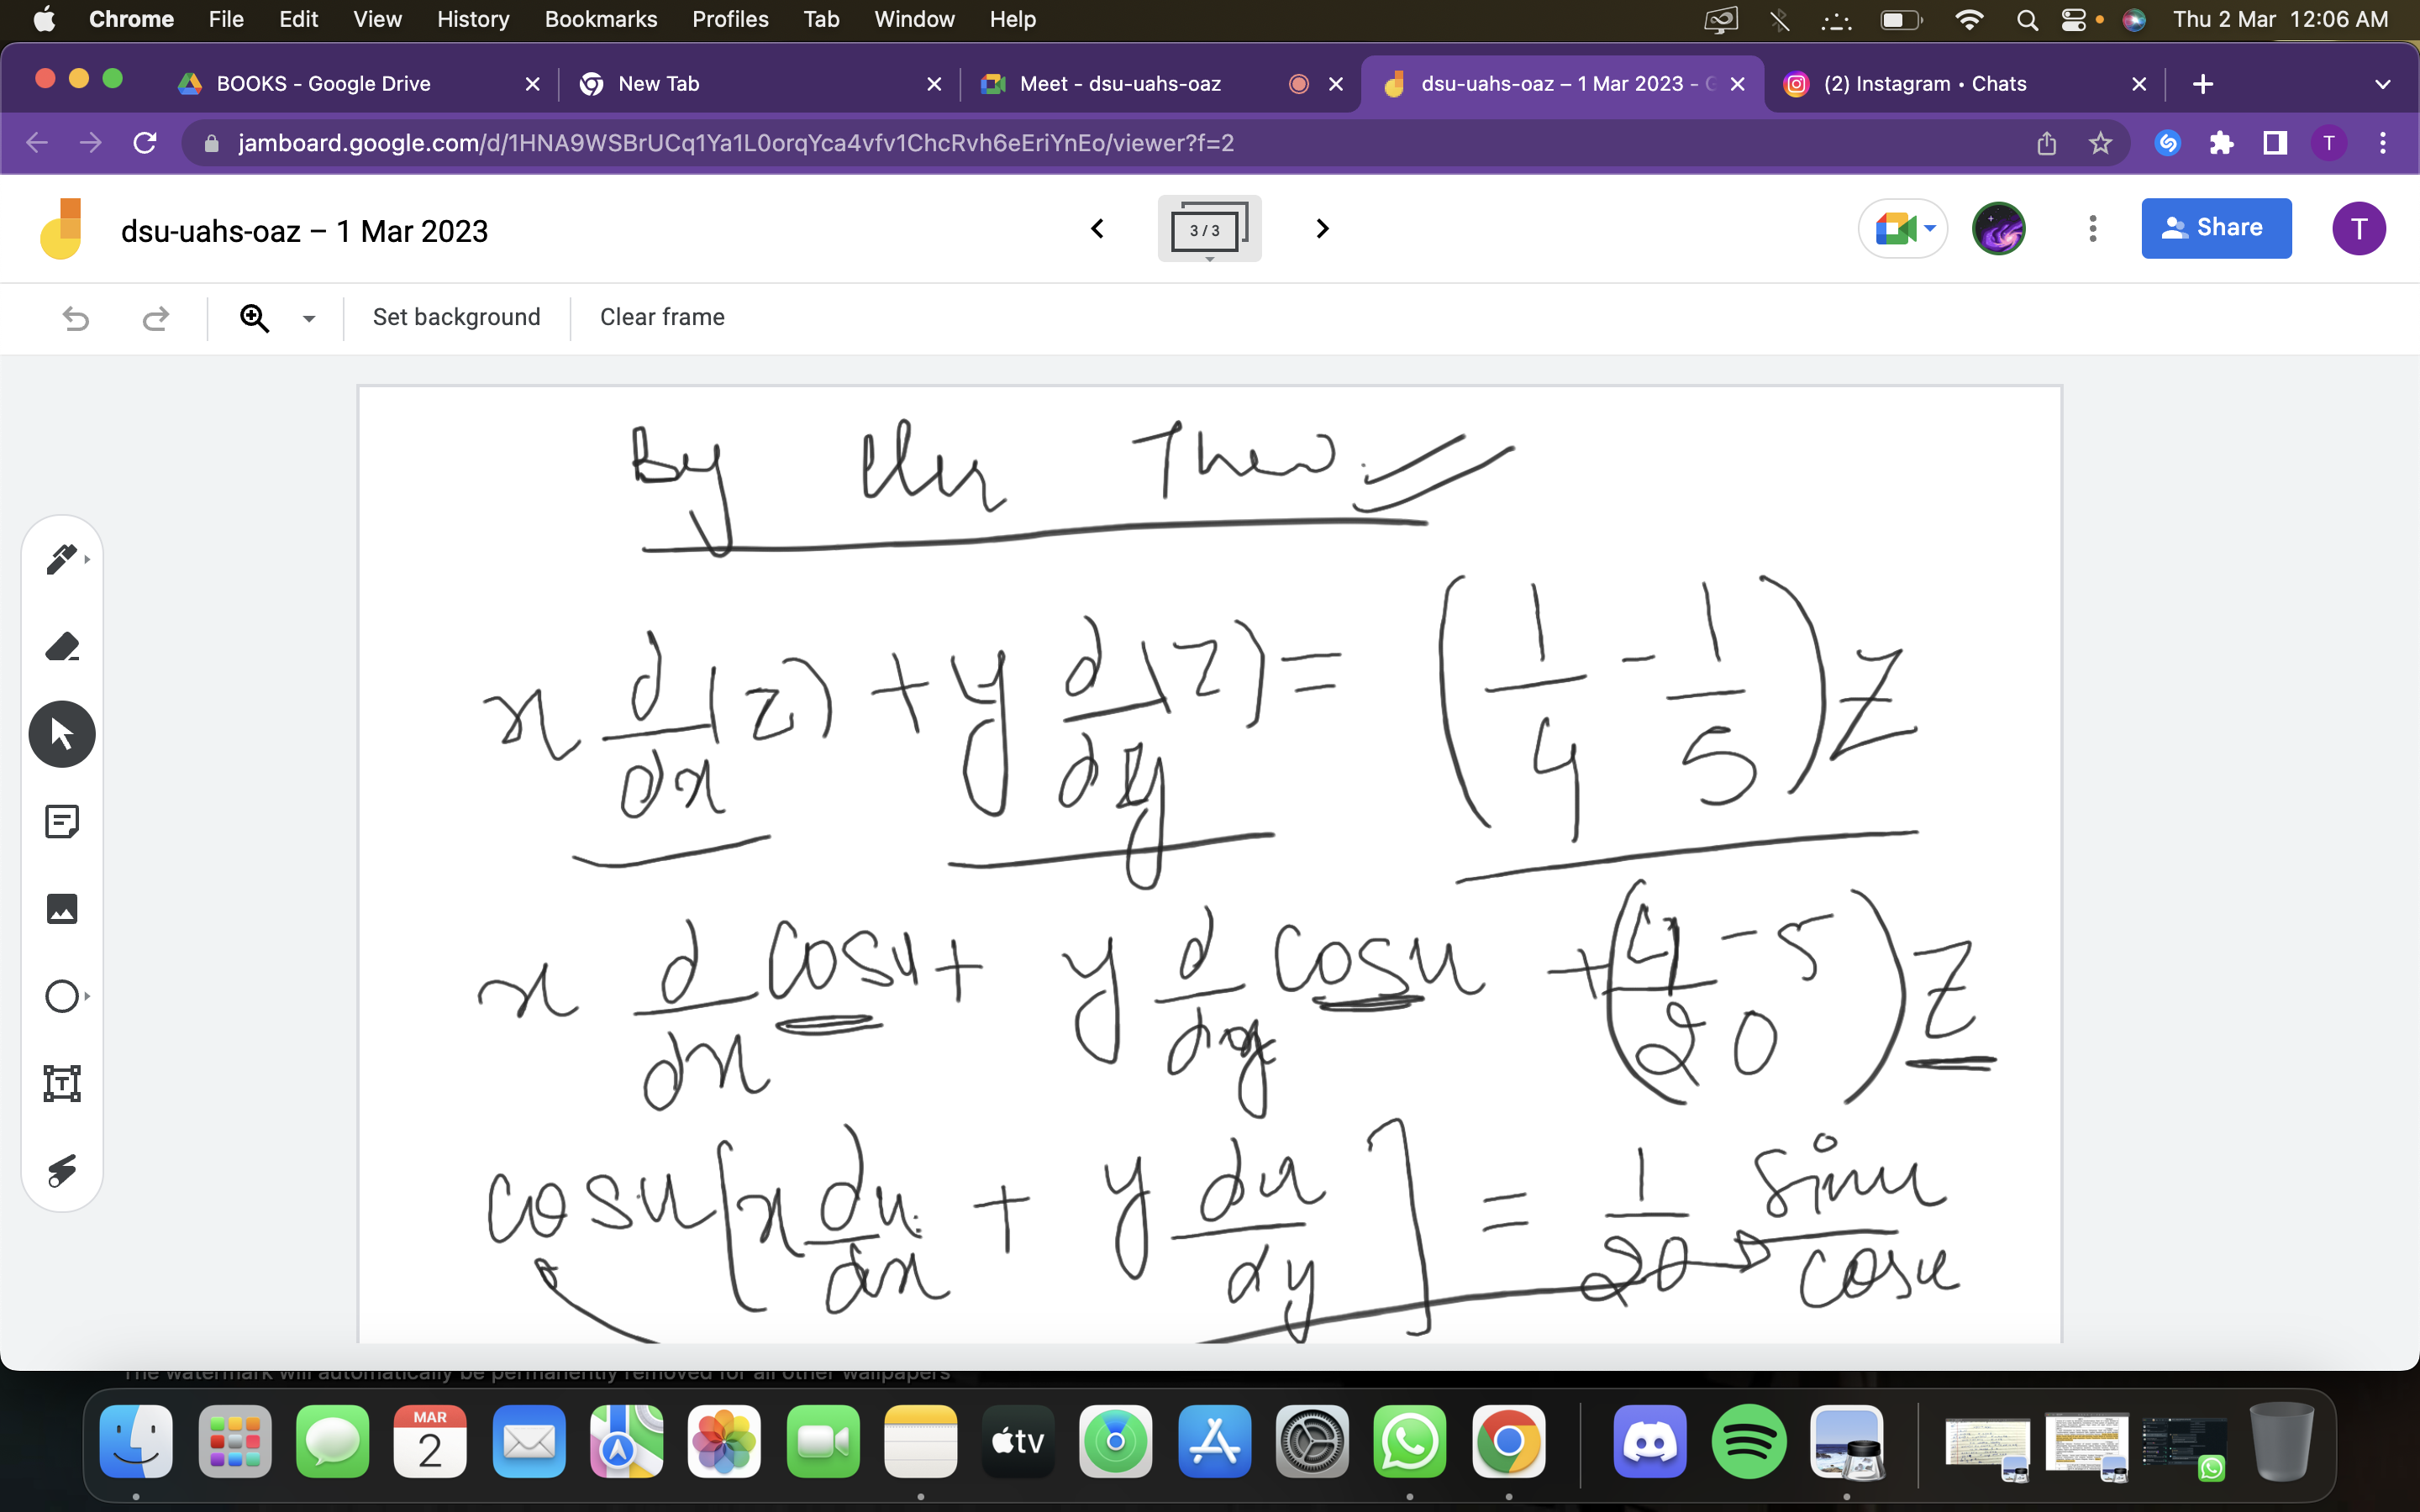 Chrome File Edit View History Bookmarks Profiles Tab Window Help Thu 2 Mar 12:06 AM
BOOKS - Google Drive New Tab Meet - dsu-uahs-oaz dsu-uahs-oaz – 1 Mar 2023 - G (2) Instagram • Chats
jamboard.google.com/d/1HNA9WSBrUCq1Ya1L0orqYca4vfv1ChcRvh6eEriYnEo/viewer?f=2 T
dsu-uahs-oaz – 1 Mar 2023 3 / 3 Share T
Set background Clear frame
By Theo.
x d/dx (z) + y d/dy (z) = (1/4 - 1/5) z
x d/dx cosu + y d/dy cosu + (4-5/20) z
cosu [x du/dx + y du/dy] = 1/20 sinu/cosu
T
The watermark will automatically be permanently removed for all other wallpapers
MAR
2
tv